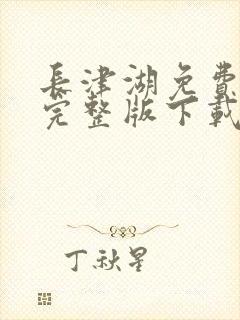 長津湖免費
完整版下載
丁秋星